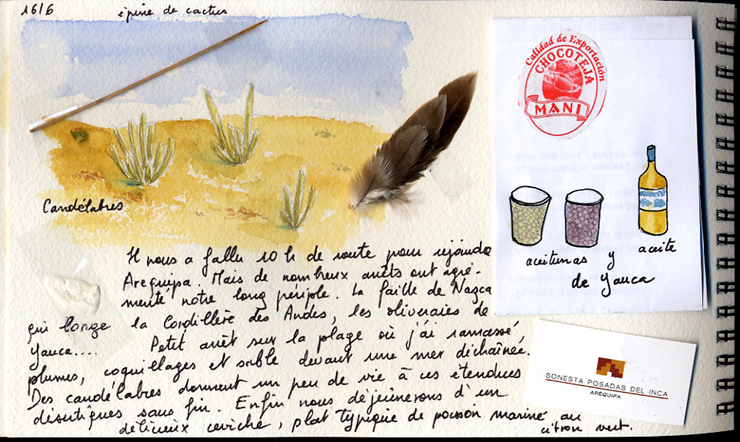 16/6
épine de cactus
Candélabres
Il nous a fallu 10 h de route pour rejoindre
Arequipa. Mais de nombreux arrêts ont agré-
menté notre long périple. La faille de Nazca
qui longe la Cordillère des Andes, les oliveraies de
Yauca.... Petit arrêt sur la plage où j'ai ramassé,
plumes, coquillages et sable devant une mer déchaînée.
Des candélabres donnent un peu de vie à ces étendues
désertiques sans fin. Enfin nous déjeunerons d'un
délicieux ceviche, plat typique de poisson mariné au
citron vert.
Calidad de Exportación
CHOCOTEJA
MANI
aceitunas y aceite
de Yauca
SONESTA POSADAS DEL INCA
AREQUIPA